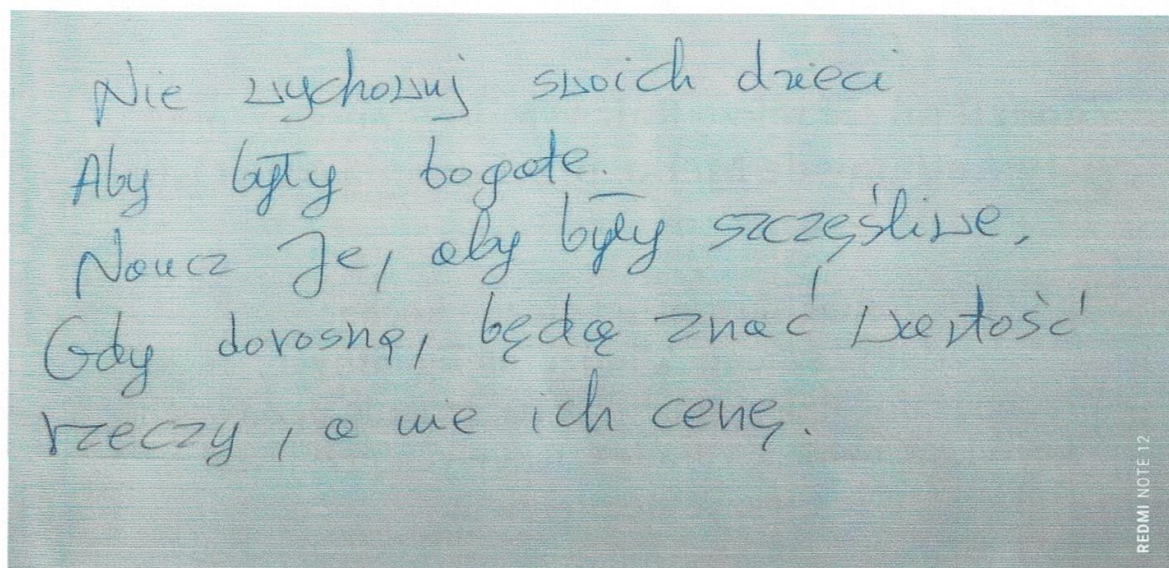 Nie wychowuj swoich dzieci
Aby były bogate.
Naucz Je, aby były szczęśliwe,
Gdy dorosną, będą znać wartość
rzeczy, a nie ich cenę.
REDMI NOTE 12